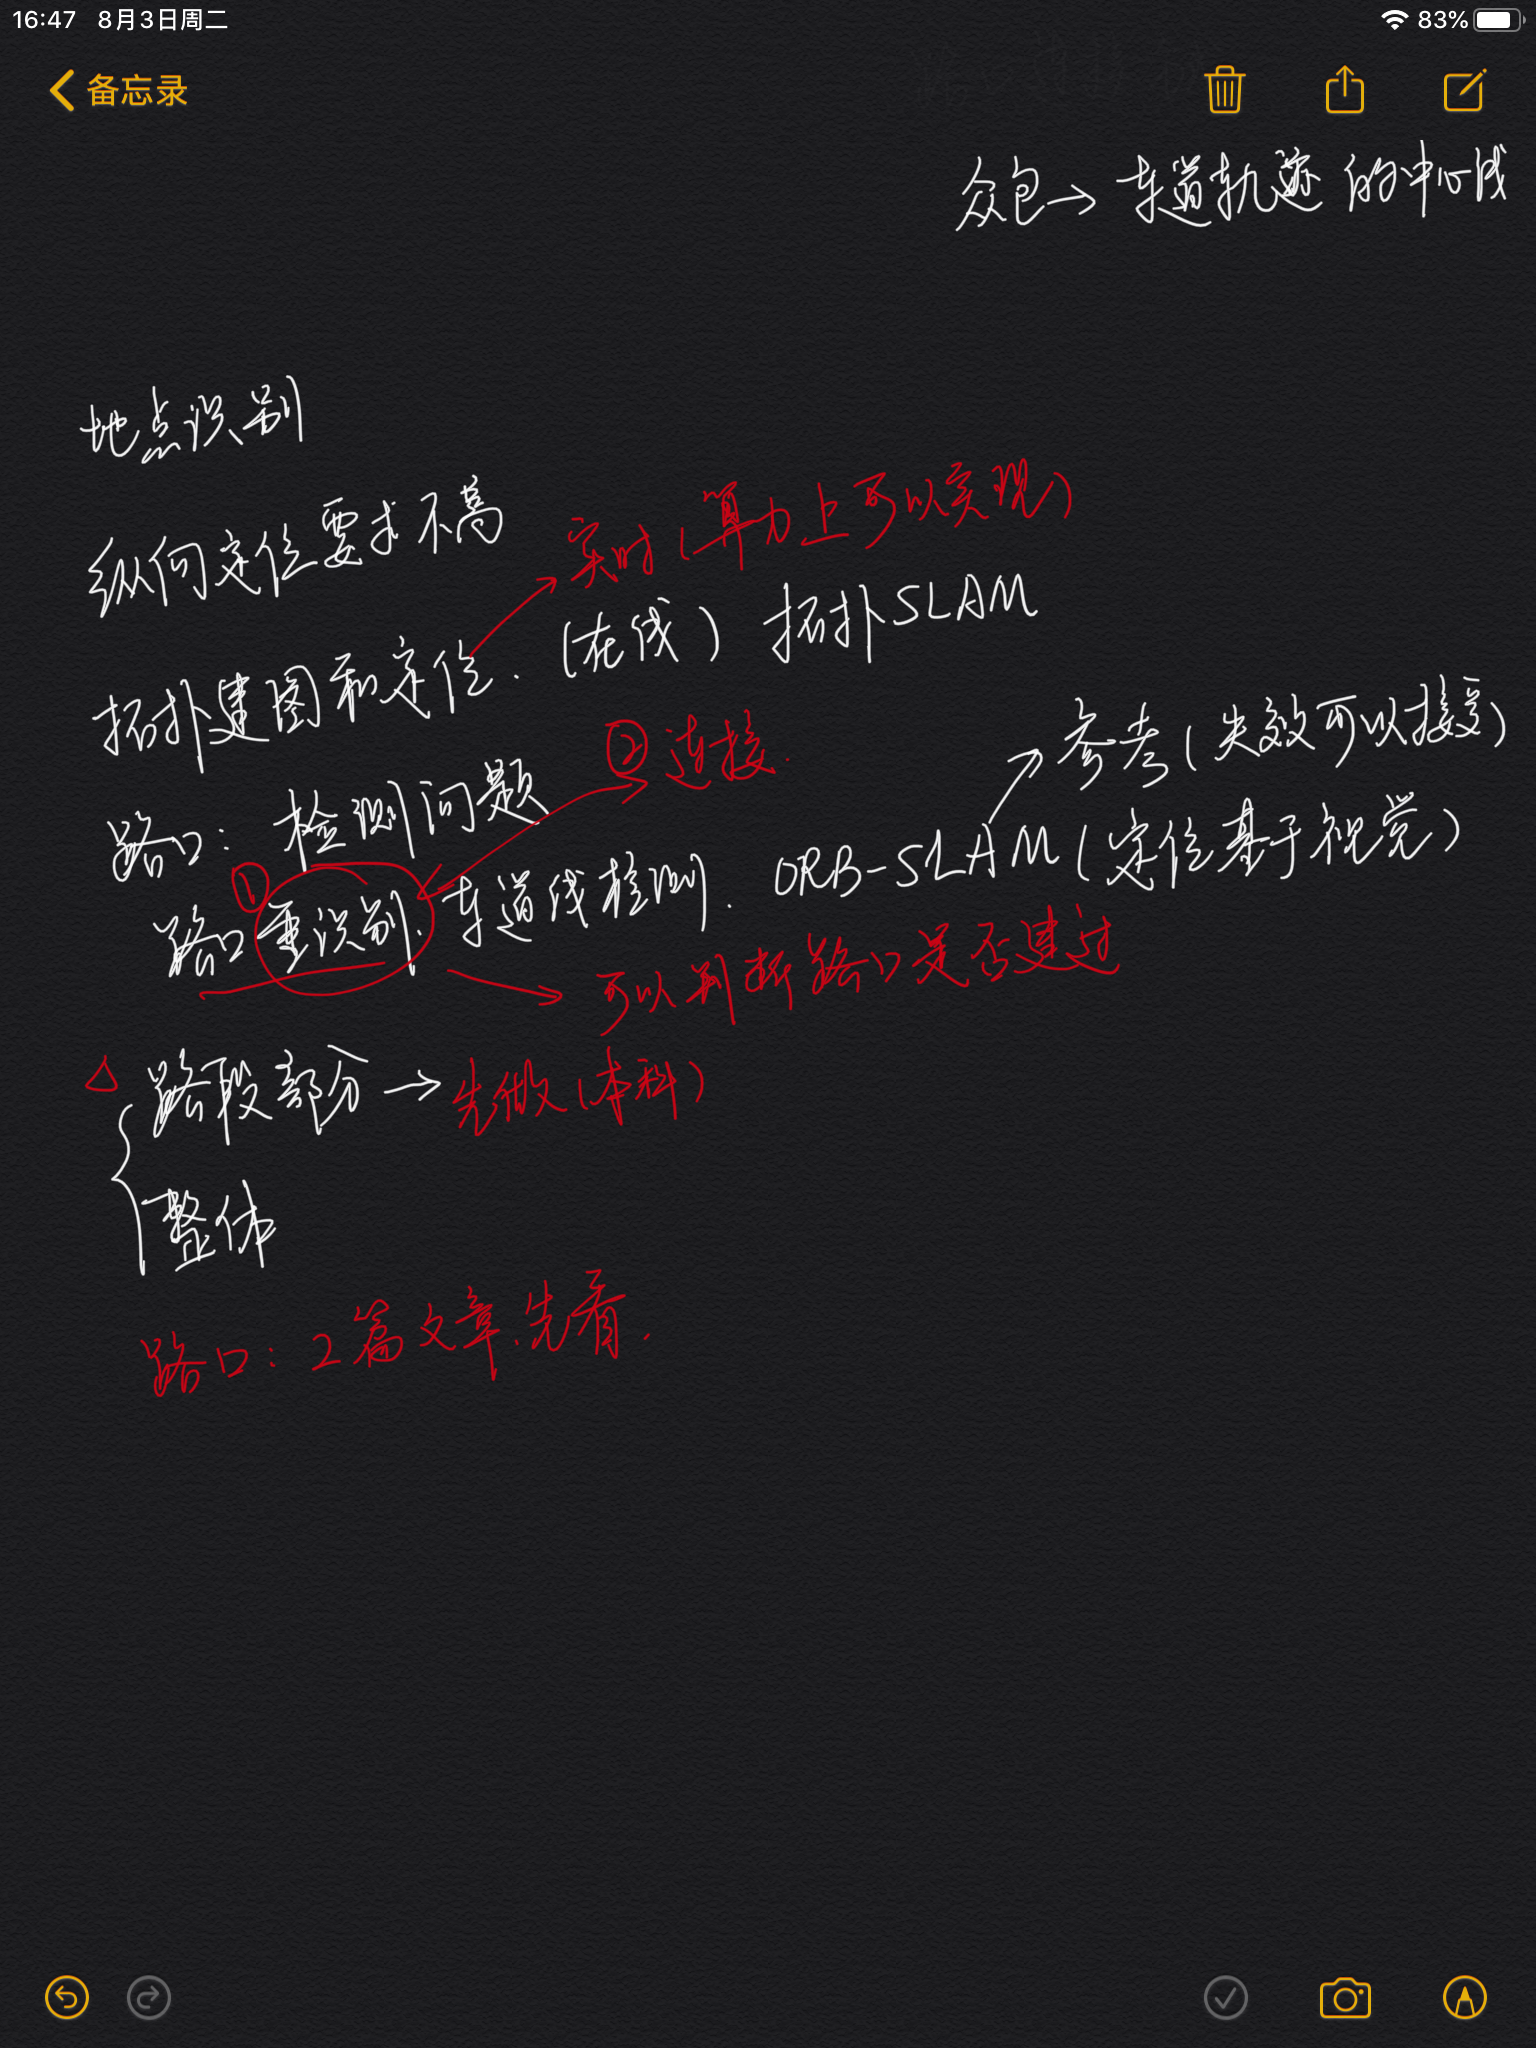 16:47 8月3日周二 83%
备忘录
众包→车道轨迹的中心线
地点识别
纵向定位要求不高
实时(算力上可以实现)
拓扑建图和定位.(在线)拓扑SLAM
②连接.
参考(失效可以接受)
路口:检测问题
①
路口重识别.车道线检测.ORB-SLAM(定位基于视觉)
→可以判断路口是否建过
△路段部分→先做(本科)
整体
路口:2篇文章.先看.